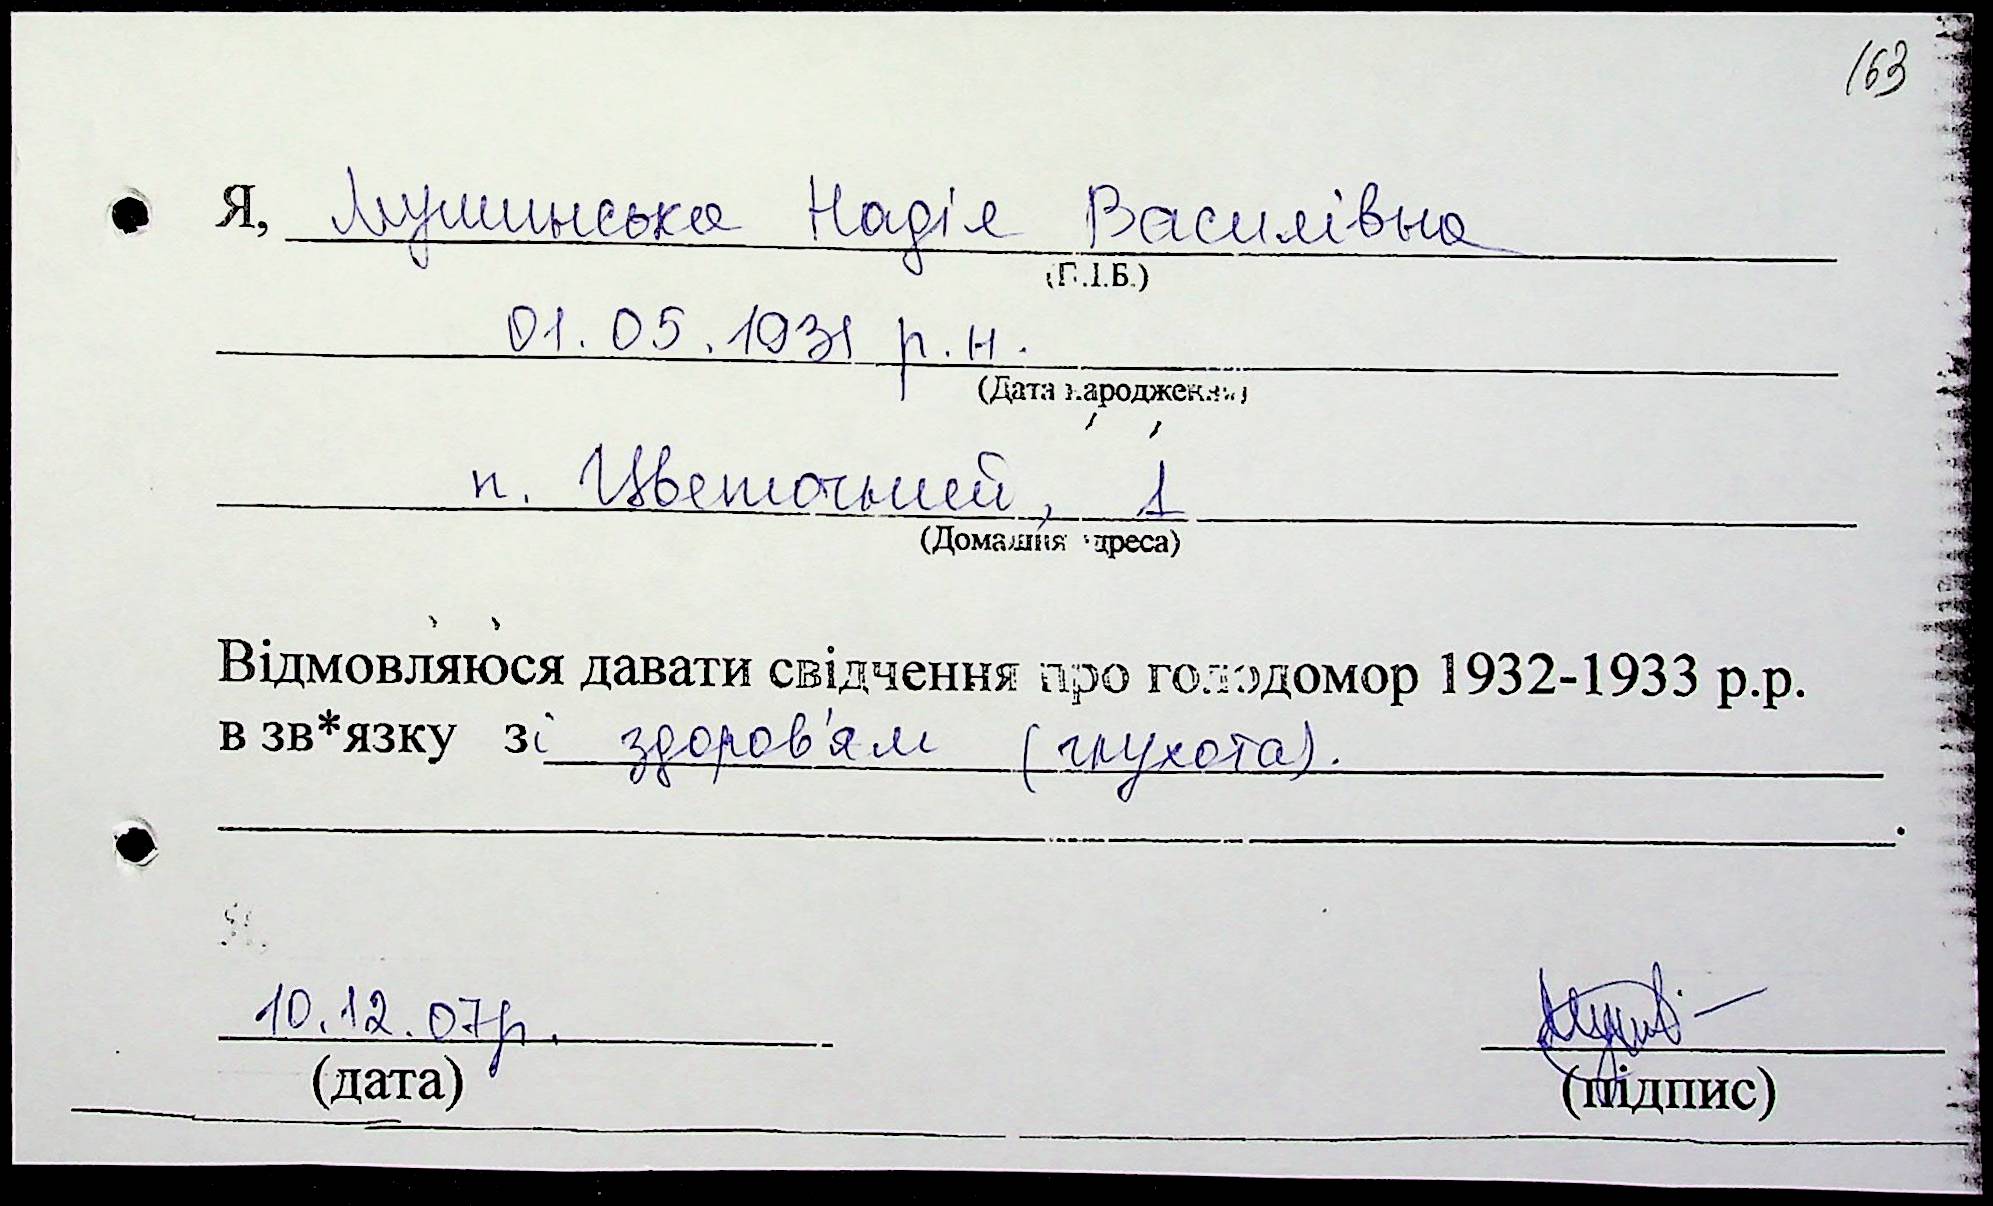 163
Я, Мушинська Надія Василівна
(П.І.Б.)
01.05.1931 р.н.
(Дата народження)
п. Цветочний, 1
(Домашня адреса)
Відмовляюся давати свідчення про голодомор 1932-1933 р.р.
в зв*язку зі здоров'ям (глухота).
.
10.12.07р.
(дата)
(підпис)